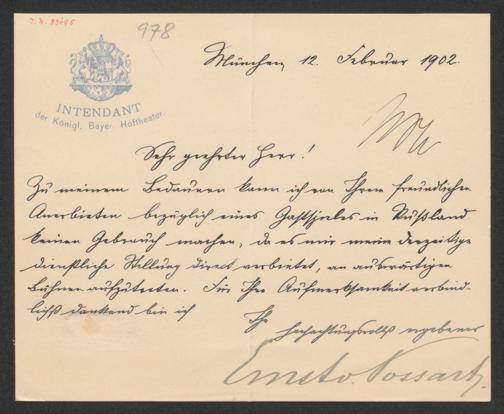 978
München, 12. Februar 1902.
INTENDANT
der Königl. Bayer. Hoftheater.
Sehr geehrter Herr!
Zu meinem Bedauern kann ich von Ihrem freundlichen
Anerbieten bezüglich eines Gastspieles in Rußland
keinen Gebrauch machen, da es mir meine derzeitige
dienstliche Stellung direct verbietet, an auswärtigen
Bühnen aufzutreten. Für Ihre Aufmerksamkeit verbind-
lichst dankend bin ich
Ihr
hochachtungsvollst ergebener
Ernst v. Possart.